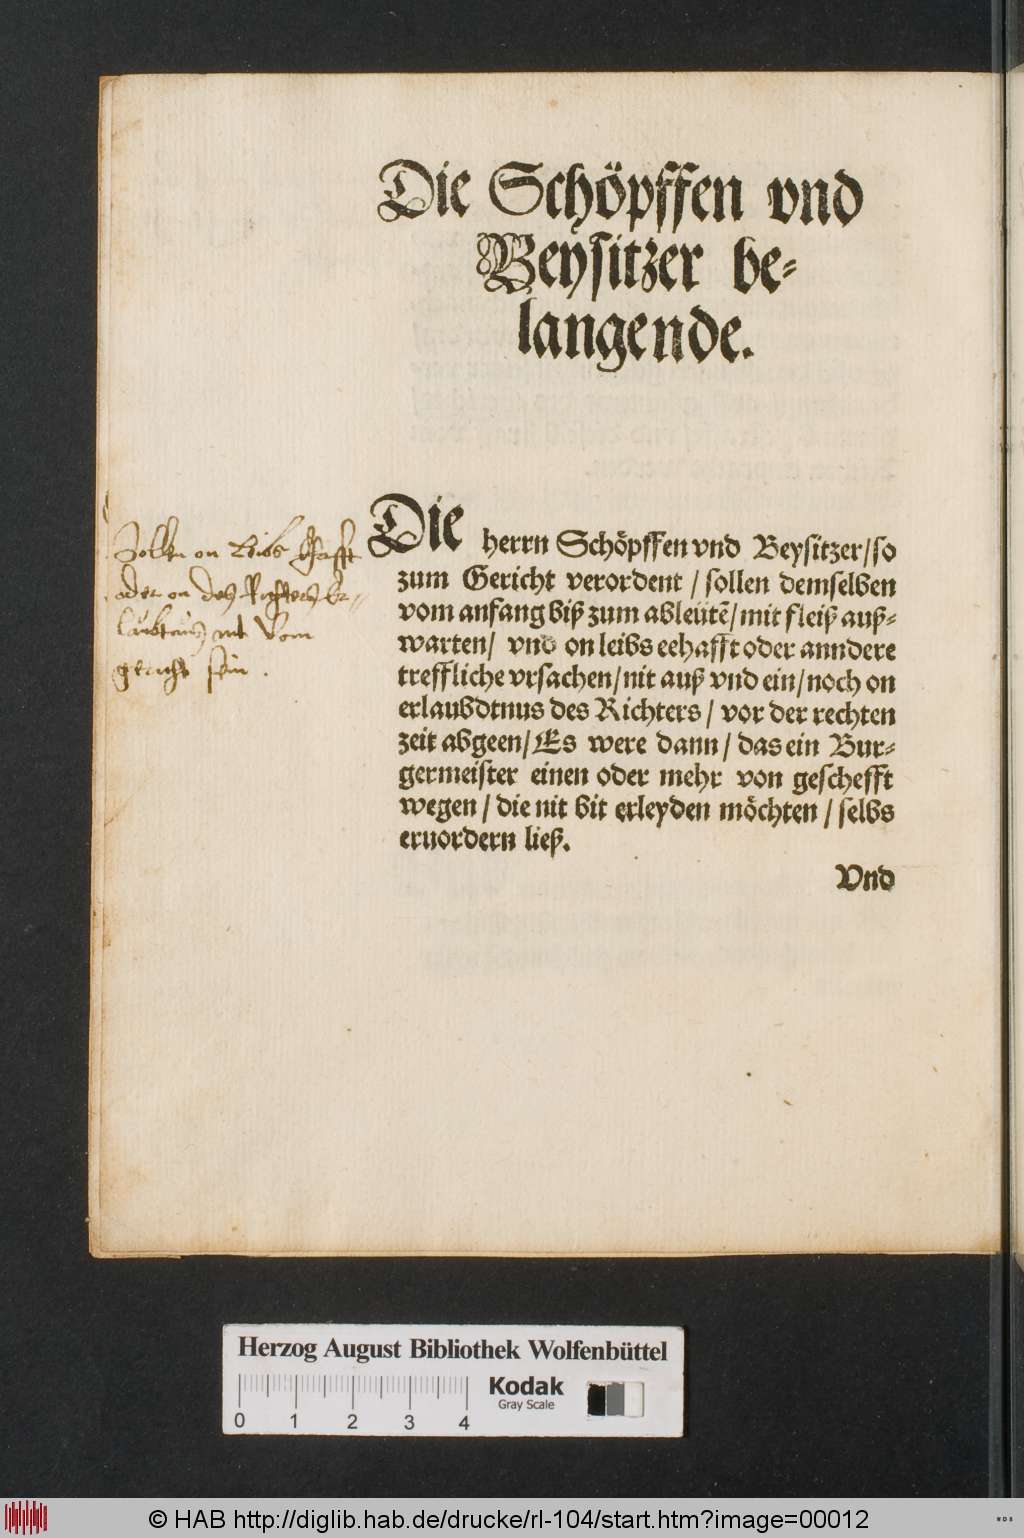 Die Schöpffen vnd
Beysitzer be-
langende.
Sollen on Leibs Ehafft
oder on deß Richters Er-
laubtnus nit Vom
gericht sein.
Die herrn Schöpffen vnd Beysitzer/so
zum Gericht verordent / sollen demselben
vom anfang biß zum ableütē/mit fleiß auß-
warten/ vnd on leibs eehafft oder anndere
treffliche vrsachen/nit auß vnd ein/noch on
erlaubdtnus des Richters / vor der rechten
zeit abgeen/Es were dann / das ein Bur-
germeister einen oder mehr von geschefft
wegen / die nit bit erleyden möchten / selbs
eruordern ließ.
Vnd
Herzog August Bibliothek Wolfenbüttel
Kodak
Gray Scale
0 1 2 3 4
© HAB http://diglib.hab.de/drucke/rl-104/start.htm?image=00012